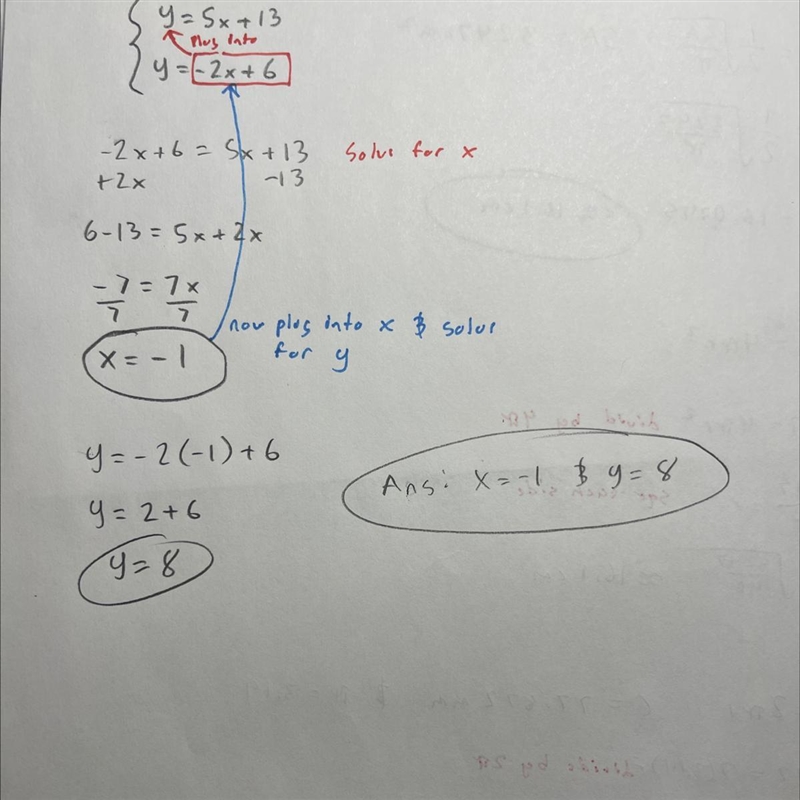 y = 5x + 13
plug into
y = -2x + 6
-2x + 6 = 5x + 13 solve for x
+2x -13
6 - 13 = 5x + 2x
-7/7 = 7x/7
now plug into x & solve
for y
x = -1
y = -2(-1) + 6
y = 2 + 6
y = 8
Ans: x = -1 & y = 8
divide by
divide by 2π